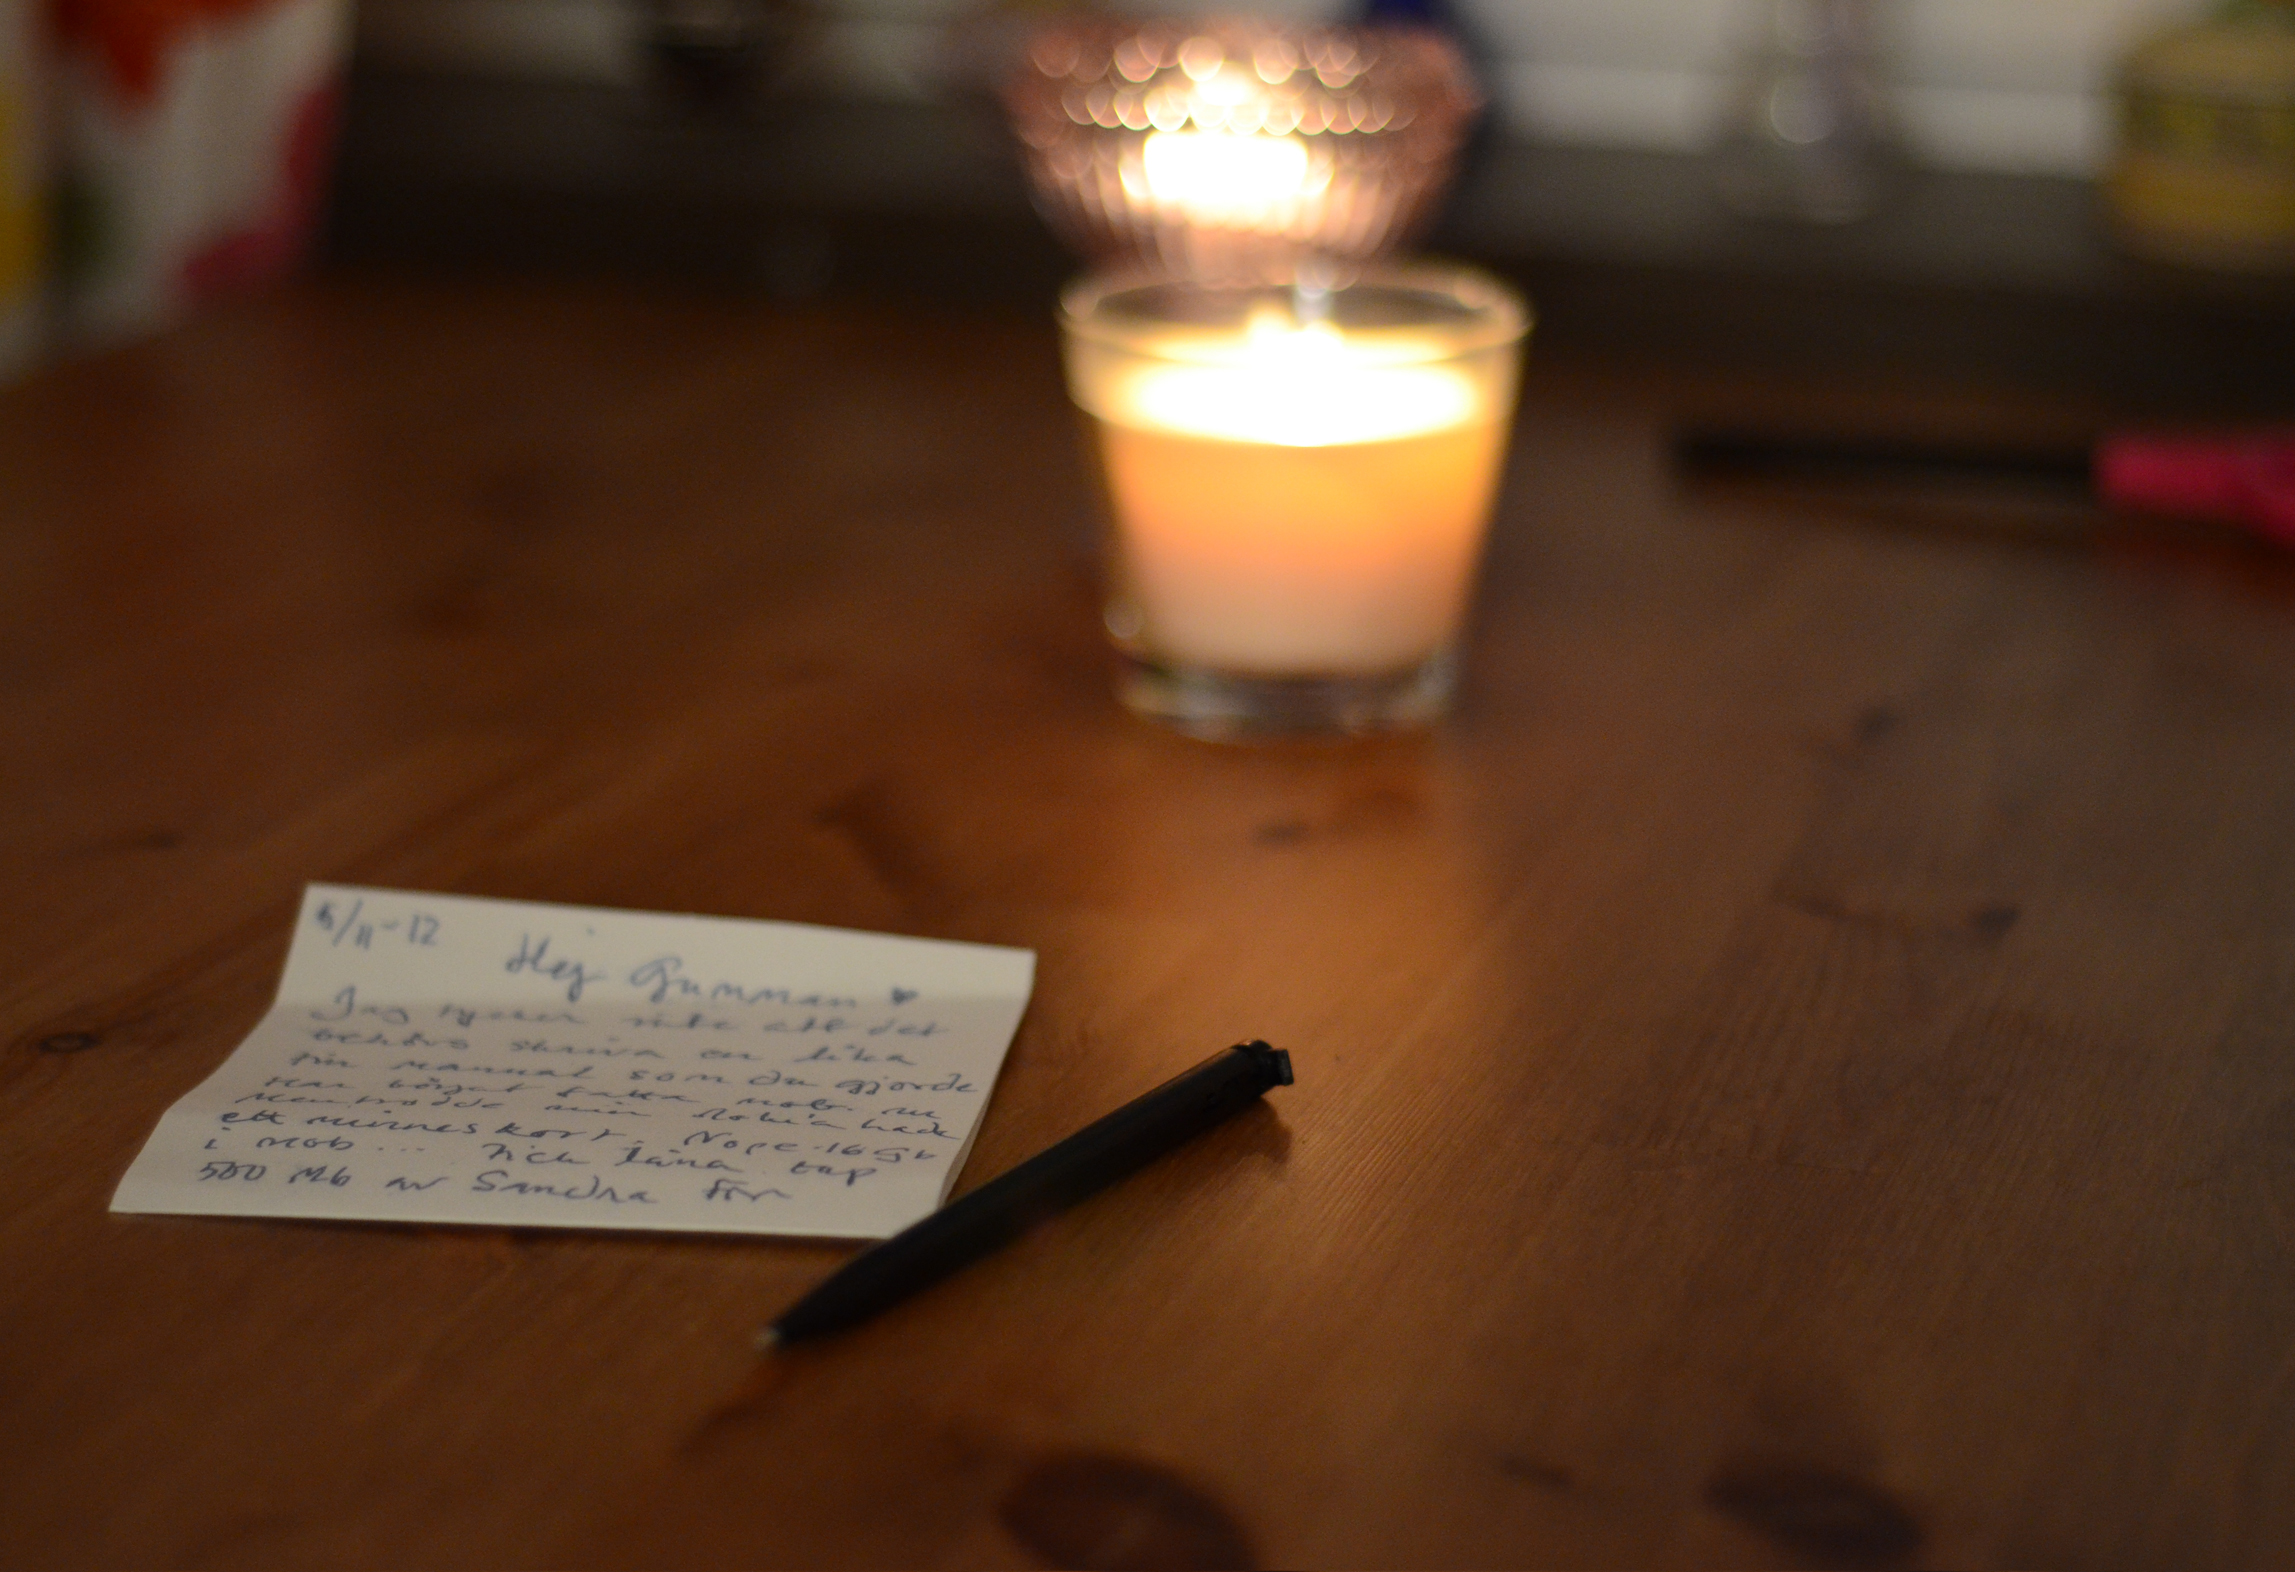 5/11-12
Hej Gumman ♥
Jag tycker inte att det
behövs skriva en lika
fin manual som du gjorde
Har börjat fatta nob. nu
Men trodde min Nokia hade
ett minneskort. Nope - 16 Gb
i mob... Fick låna upp
500 Mb av Sandra för